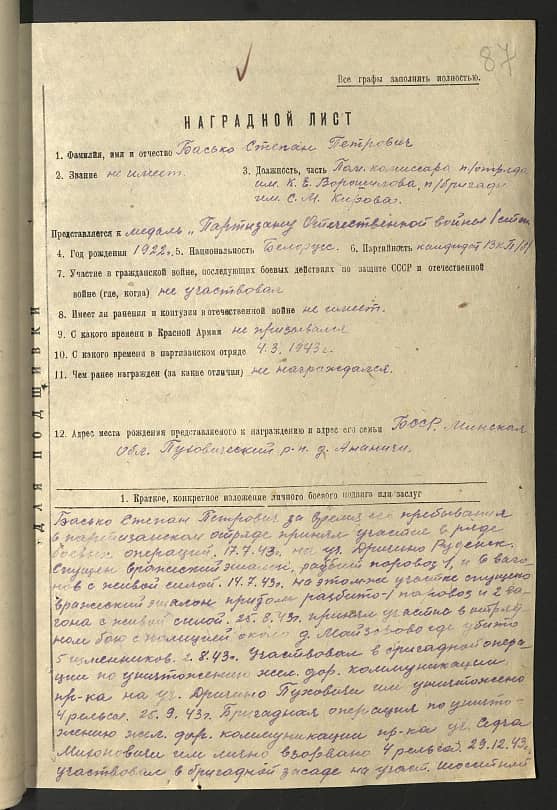 87
Все графы заполнять полностью.
НАГРАДНОЙ ЛИСТ
1. Фамилия, имя и отчество Басько Степан Петрович
2. Звание не имеет.
3. Должность, часть Пом. комиссара п/отряда
им. К. Е. Ворошилова, п/бригады
им. С. М. Кирова.
Представляется к медаль „Партизану Отечественной войны I степ.
4. Год рождения 1922г. 5. Национальность Белорус. 6. Партийность кандидат ВКП/б/
7. Участие в гражданской войне, последующих боевых действиях по защите СССР и отечественной
войне (где, когда) не участвовал
8. Имеет ли ранения и контузии в отечественной войне не имеет.
9. С какого времени в Красной Армии не призывался
10. С какого времени в партизанском отряде 4.3.1943г.
11. Чем ранее награжден (за какие отличия) не награждался.
12. Адрес места рождения представляемого к награждению и адрес его семьи БССР, Минская
обл. Пуховический р-н д. Ананичи.
ДЛЯ ПОДШИВКИ
1. Краткое, конкретное изложение личного боевого подвига или заслуг
Басько Степан Петрович за время его пребывания
в партизанском отряде принял участие в ряде
боевых операций. 17.7.43г. на уч. Дричино Руденск.
спущен вражеский эшалон, разбит паровоз 1, и 6 ваго-
нов с живой силой. 14.7.43г. на этом же участке спущено
вражеский эшалон притом разбито-1 паровоз и 2 ва-
гона с живой силой. 25.8.43г. принял участие в отряд-
ном бою с полицией около д. где убито
5 изменников. 2.8.43г. Участвовал в бригадной опера-
ции по уничтожению жел. дор. коммуникации
пр-ка на уч. Дричино Пуховичи им уничтожено
4 рельса. 25.9.43г. Бригадная операция по уничто-
жению жел. дор. коммуникации пр-ка уч.
им лично взорвано 4 рельса. 29.12.43г.
участвовал в бригадной засаде на участ. шоссейной